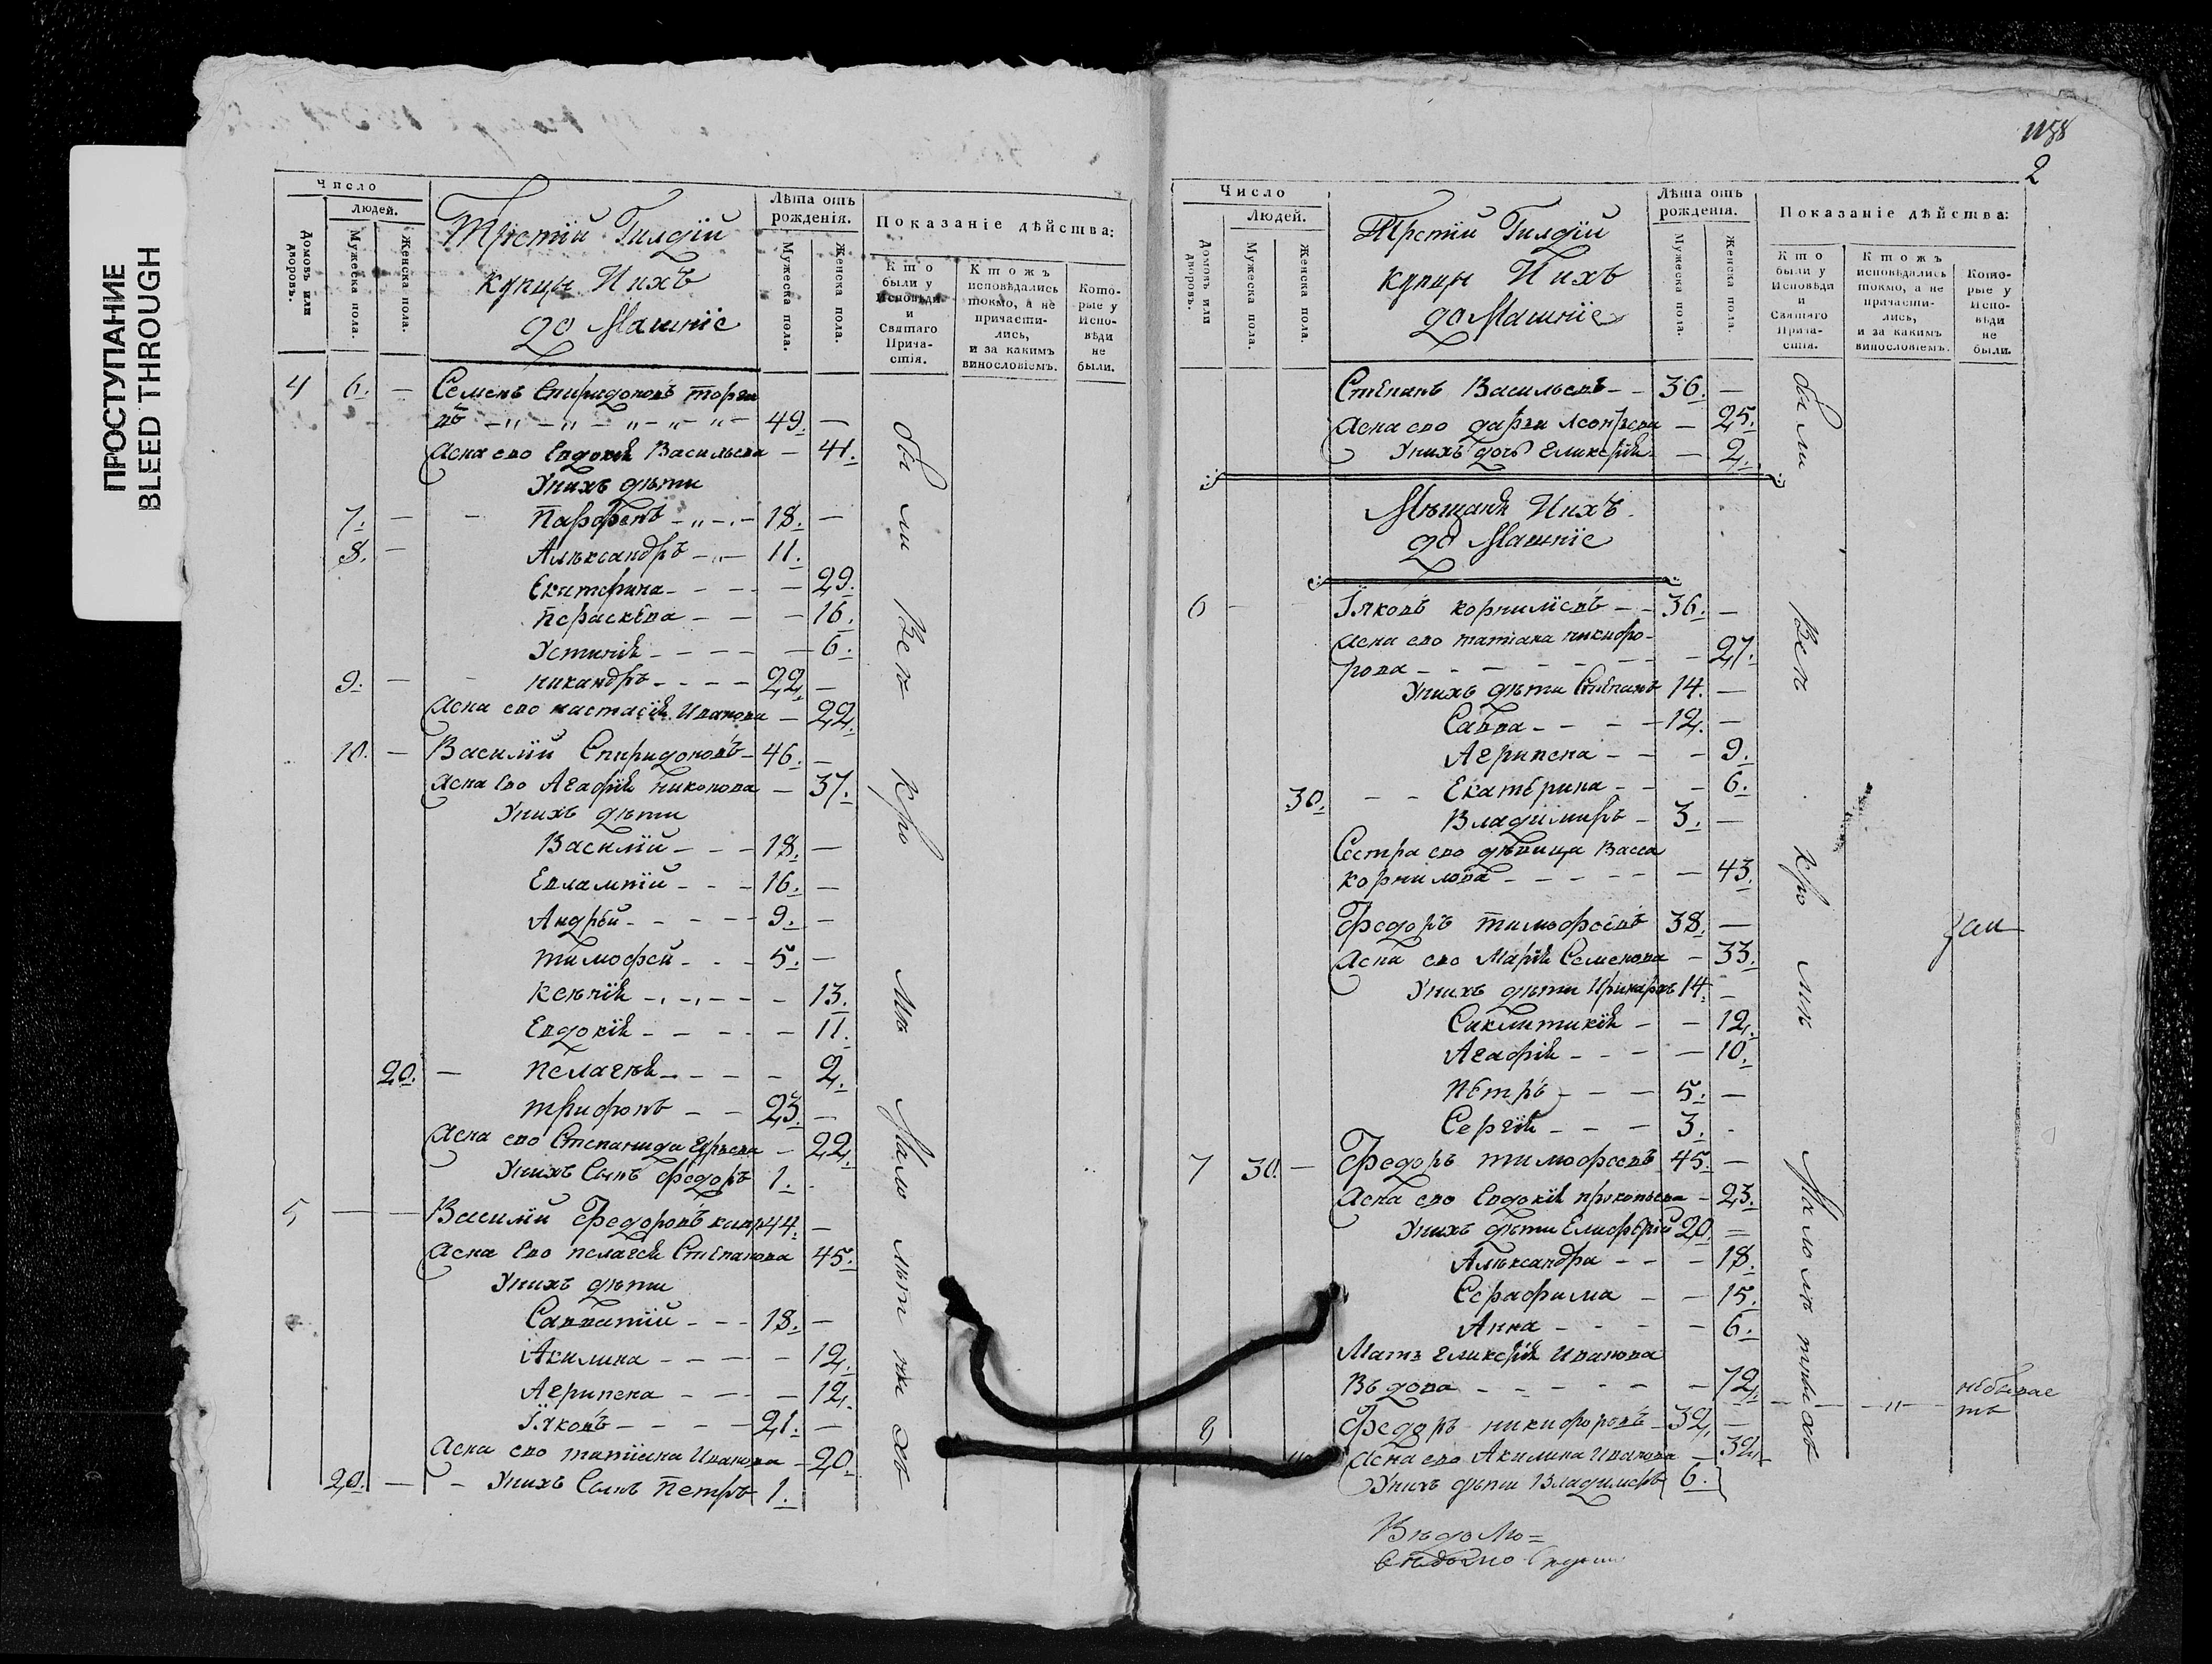 ПРОСТУПАНИЕ
BLEED THROUGH
Число
Людей.
Домовъ или дворовъ.
Мужеска пола.
Женска пола.
Третiй Гилдiй
купцы Ихъ
домашнiе
Лѣта отъ рожденiя.
Мужеска пола.
Женска пола.
Показанiе дѣйства:
Кто были у Исповѣди и Святаго Причастiя.
Ктожъ исповѣдались токмо, а не причастились, и за какимъ винословiемъ.
Которые у Исповѣди не были.
4 6. — Семенъ Спиридоновъ
49. —
Жена ево Евдокiя Васильева — 41.
Унихъ дѣти
7. — — Парфенъ 18. —
8. — Алѣксандръ 11.
Екатерина — 29.
Пераскева — 16.
Устинiя — 6.
9. — Никандръ 22. —
Жена ево настасiя Иванова — 22.
10. — Василiй Спиридоновъ 46. —
Жена Ево Агафiя Никонова — 37.
Унихъ дѣти
Василiй 18. —
Евлампiй 16. —
Андрей 9. —
Тимофей 5. —
Ксѣнiя — 13.
Евдокiя — 11.
20. — Пелагѣя — 2.
Трифонъ 23. —
Жена ево Степанида — 22.
Унихъ Сынъ Федоръ 1.
5 — — Василiй Федоровъ 44. —
Жена Ево пелагея Степанова 45.
Унихъ дѣти
Савватiй 18. —
Акилина — 12.
Агрипена — 12.
Iяковъ 21. —
Жена ево татiана Иванова — 20.
20. — — Унихъ Сынъ Петръ 1.
были Всѣ Кро мѣ Мало лѣт
1158
2
Число
Людей.
Домовъ или дворовъ.
Мужеска пола.
Женска пола.
Третiй Гилдiй
купцы Ихъ
домашнiе
Лѣта отъ рожденiя.
Мужеска пола.
Женска пола.
Показанiе дѣйства:
Кто были у Исповѣди и Святаго Причастiя.
Ктожъ исповѣдались токмо, а не причастились, и за какимъ винословiемъ.
Которые у Исповѣди не были.
Степанъ Васильевъ 36. —
Жена ево дарья — 25.
Унихъ дочь Гликерiя — 2.
Мѣщанѣ Ихъ
домашнiе
6 — Iяковъ корнилiевъ 36. —
Жена ево татiана никифо-
рова — 27.
Унихъ дѣти Степанъ 14. —
Савва 12. —
Агрипена — 9.
30. — — Екатерина — 6.
Владимиръ 3. —
Сестра ево дѣвица Васса
Корнилова — 43.
Федоръ тимофеевъ 38. —
Жена ево Марiя Семенова — 33.
Унихъ дѣти Иринархъ 14. —
Саклитикiя — 12.
Агафiя — 10.
Петръ 5. —
Сергiй 3.
7 30. — Федоръ тимофеевъ 45. —
Жена ево Евдокiя прокопьева — 23.
Унихъ дѣти Елифѣрiй 20. —
Алѣксандра — 18.
Серафима — 15.
Анна — 6.
Мать гликерiя Иванова
Вдова — 72.
8 Федоръ никифоровъ 32. —
Жена ево Акилина Иванова — 32.
Унихъ дѣти Владимеръ 6.
были Всѣ Кро мѣ
небывае
тъ